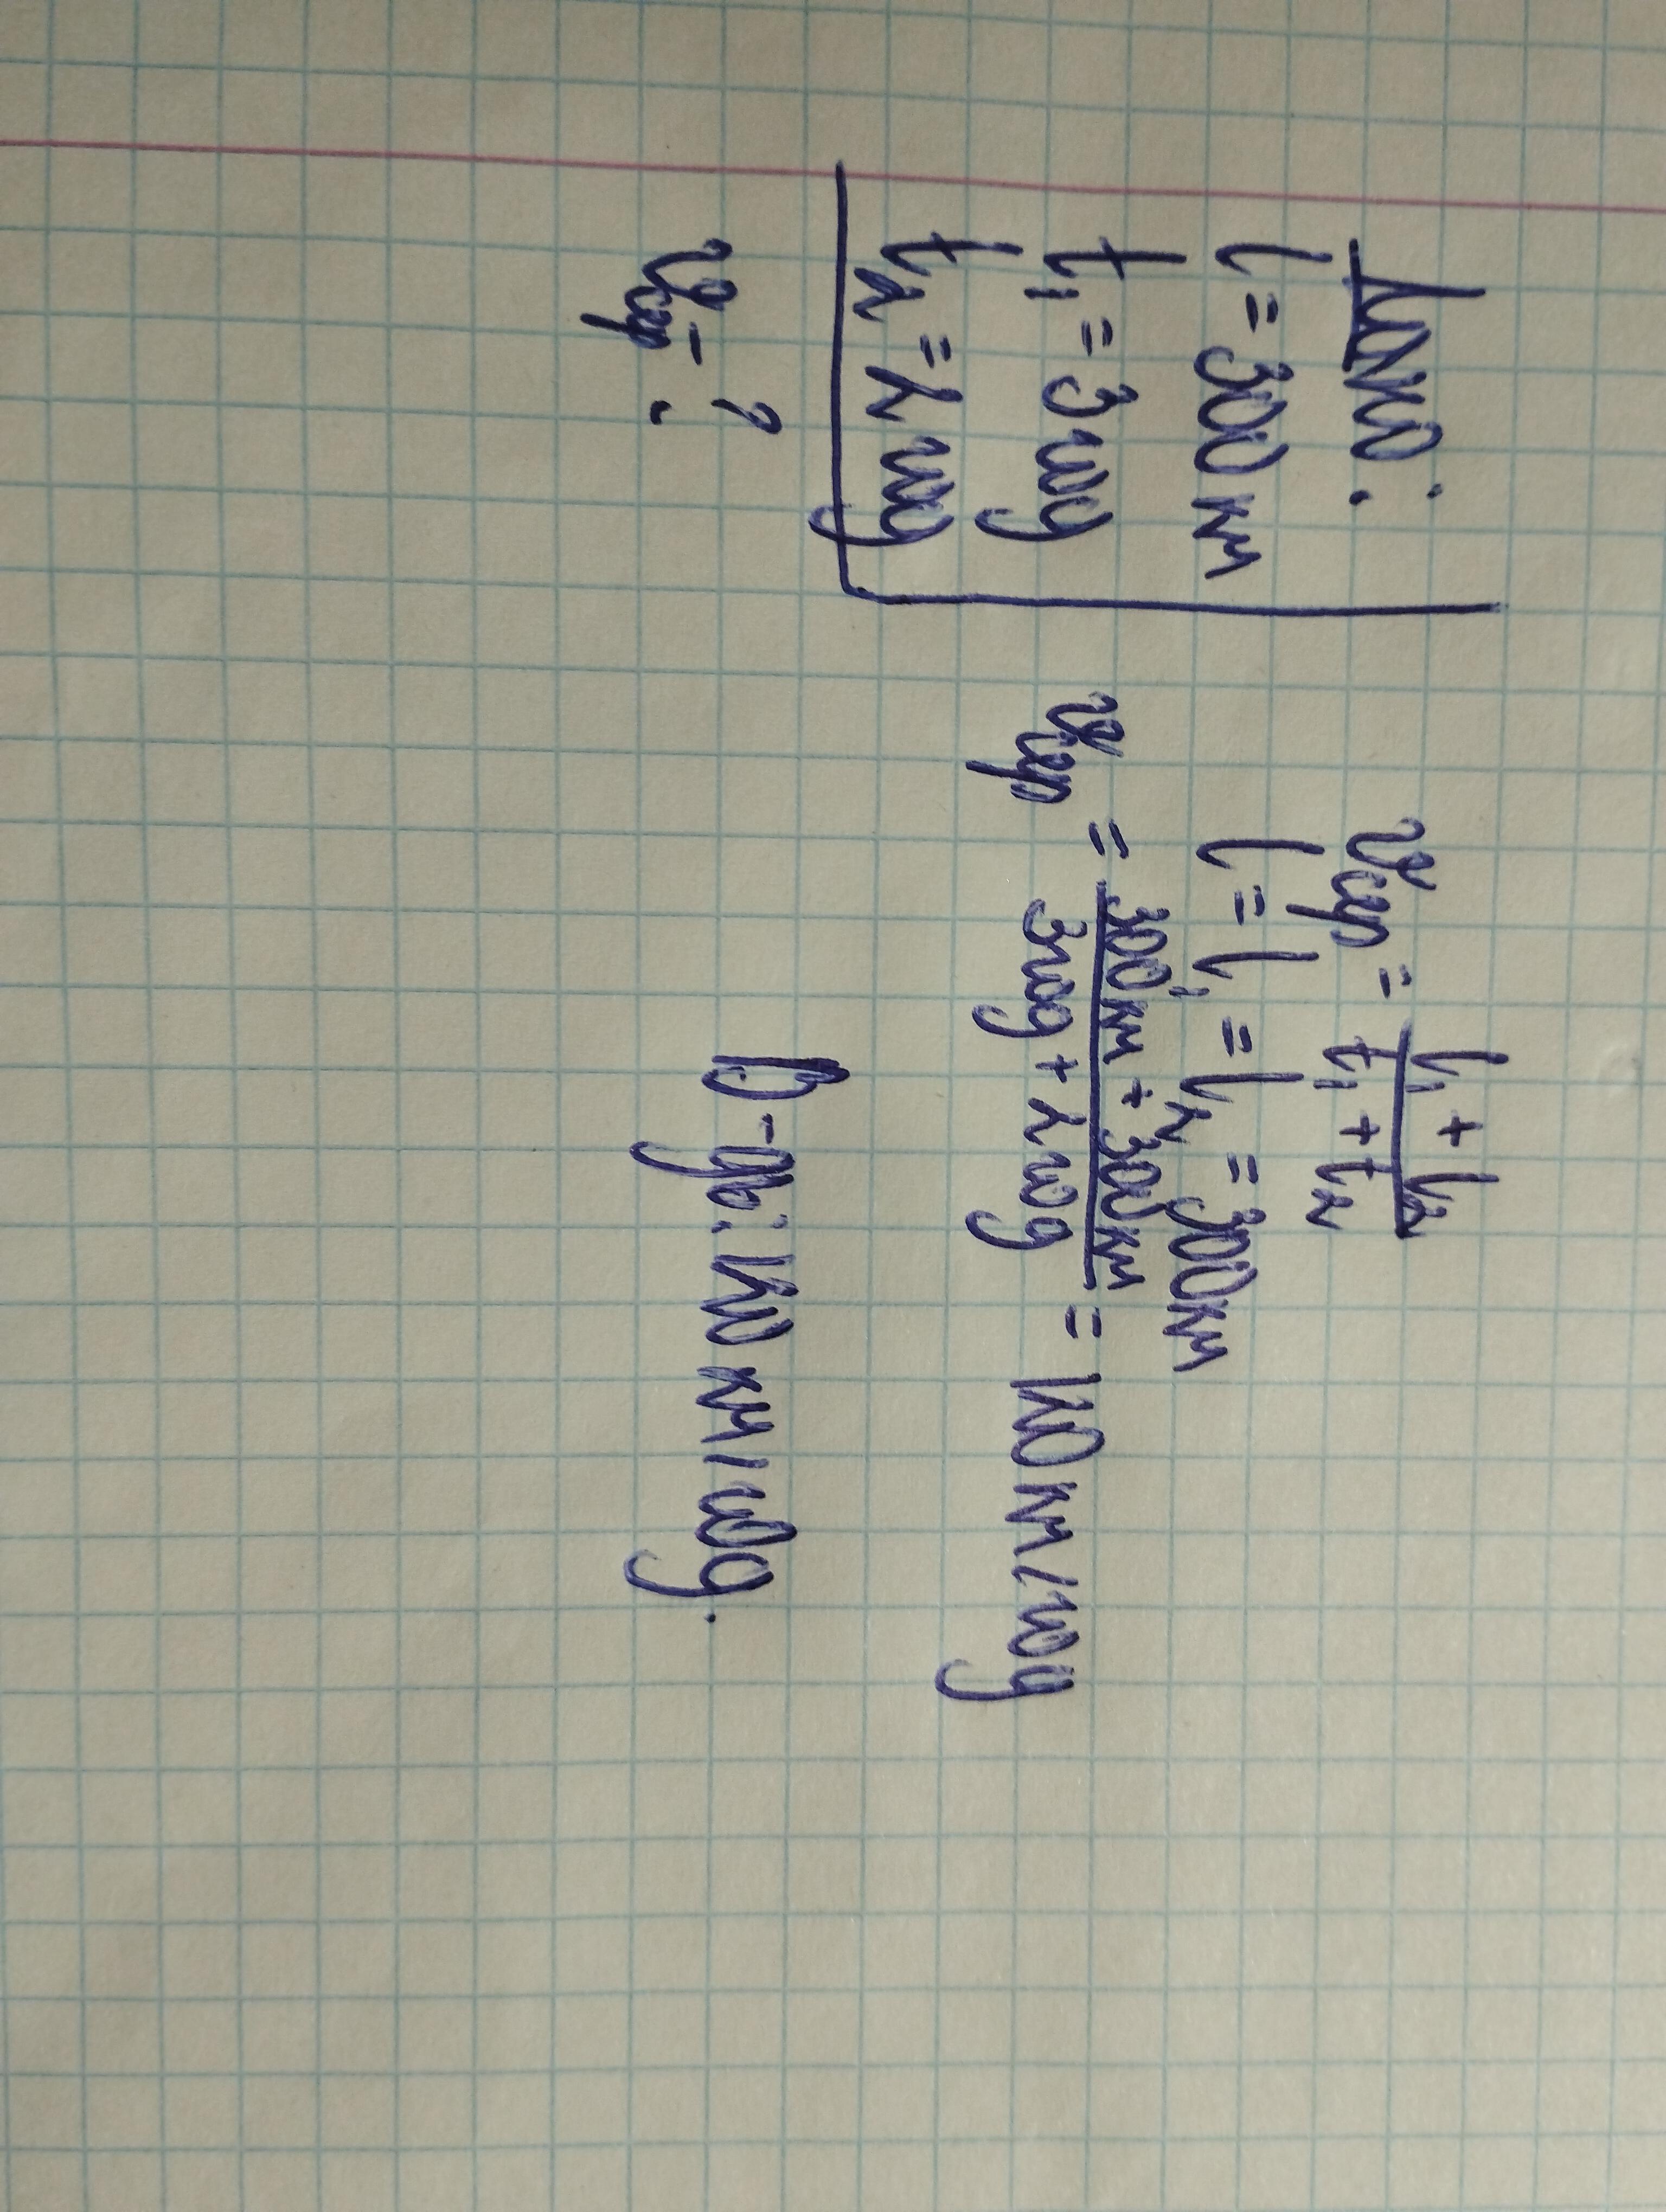 Дано:
l = 300 км
t₁ = 3 год
t₂ = 2 год
vсер - ?
vсер = (l₁ + l₂) / (t₁ + t₂)
l = l₁ = l₂ = 300 км
vсер = (300 км + 300 км) / (3 год + 2 год) = 120 км/год
В-дь: 120 км/год.